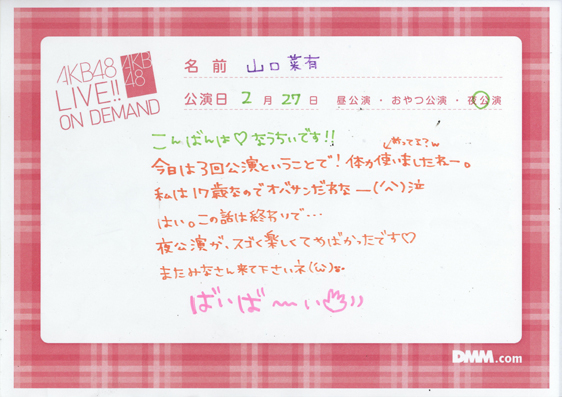 AKB48
LIVE!!
ON DEMAND
AKB
48
名前 山口菜有
公演日 2月27日 昼公演・おやつ公演・夜公演
こんばんは♡なうちぃです!!
めってよ?w
今日は3回公演ということで!体力使いましたねー。
私は17歳なのでオバサンだわなー(^^)泣
はい。この話は終わりで…
夜公演が、スゴく楽しくてやばかったです♡
またみなさん来て下さいネ(ω)
ばいば〜い
DMM.com